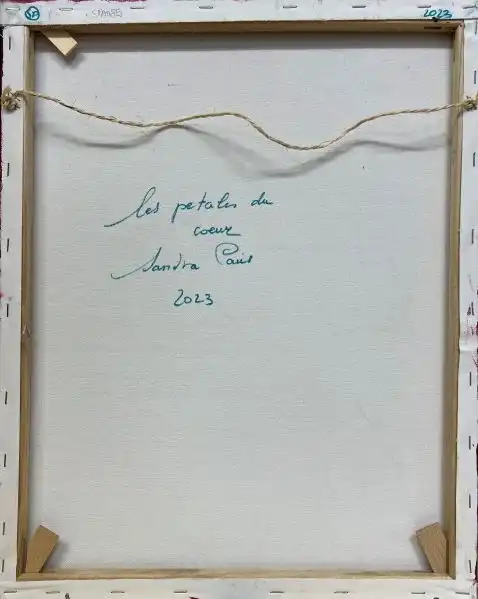 2023
les petales du
coeur
Sandra Paris
2023